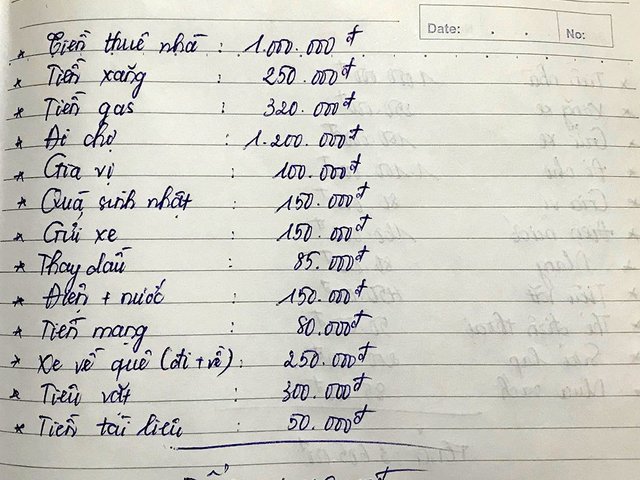 Date: . . No:
* Tiền thuê nhà : 1.000.000đ
* Tiền xăng : 250.000đ
* Tiền gas : 320.000đ
* Đi chợ : 1.200.000đ
* Gia vị : 100.000đ
* Quà sinh nhật : 150.000đ
* Gửi xe : 150.000đ
* Thay dầu : 85.000đ
* Điện + nước : 150.000đ
* Tiền mạng : 80.000đ
* Xe về quê (đi + về) : 250.000đ
* Tiêu vặt : 300.000đ
* Tiền tài liệu : 50.000đ